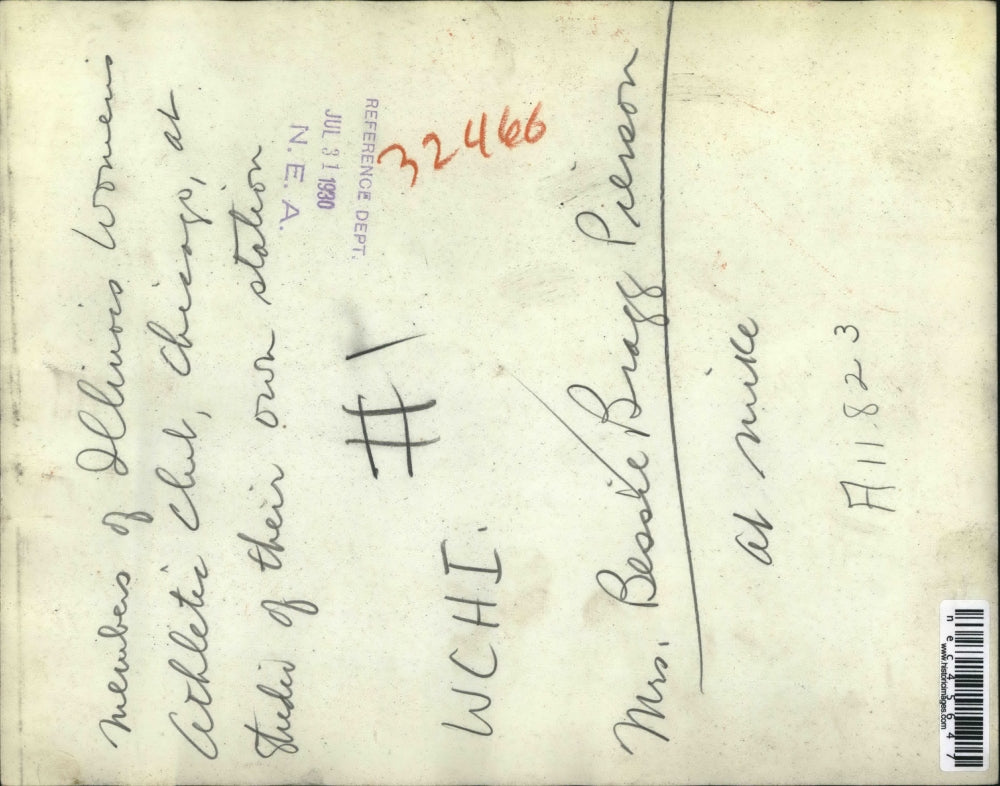 Members of Illinois Womens
Athletic Club, Chicago, at
studio of their own station
REFERENCE DEPT.
JUL 31 1930
N. E. A.
32466
#1
WCHI.
Mrs. Bessie Bragg Pierson
at mike
A11823
www.historicimages.com
nec45647